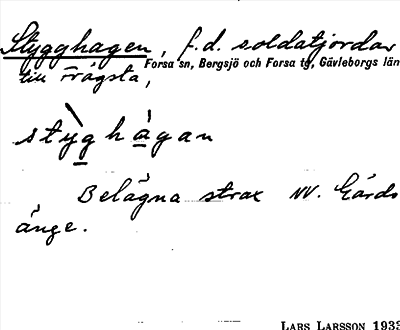 Stygghagen, f.d. soldatjordar
Forsa sn, Bergsjö och Forsa tg, Gävleborgs län
till Frägsta,
stỳghàgan
Belägna strax NV. Gårds
änge.
LARS LARSSON 1933